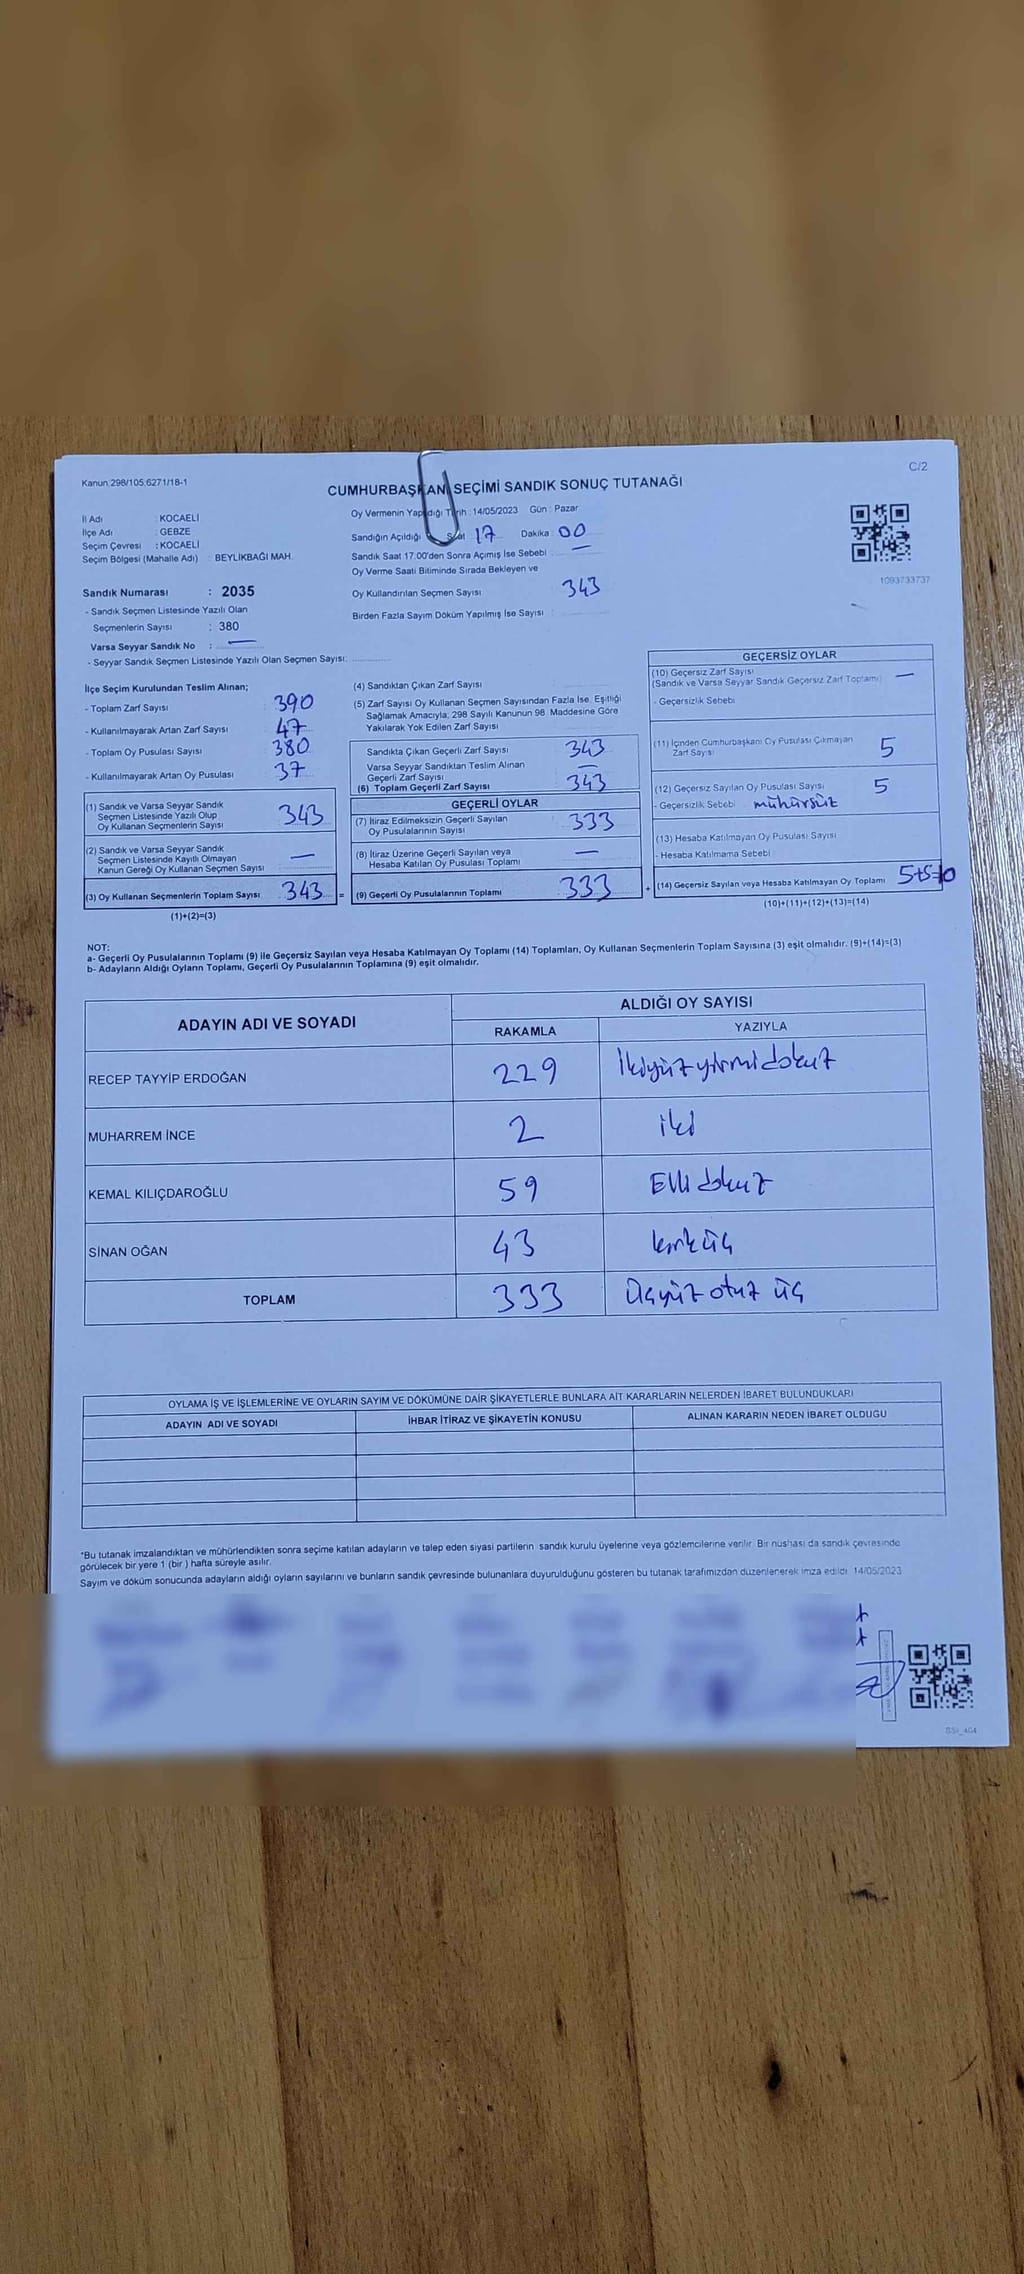 C/2
Kanun:298/105;6271/18-1
CUMHURBAŞKANI SEÇİMİ SANDIK SONUÇ TUTANAĞI
İl Adı : KOCAELİ
İlçe Adı : GEBZE
Seçim Çevresi : KOCAELİ
Seçim Bölgesi (Mahalle Adı) : BEYLİKBAĞI MAH.
Sandık Numarası : 2035
- Sandık Seçmen Listesinde Yazılı Olan
Seçmenlerin Sayısı : 380
Varsa Seyyar Sandık No : —
- Seyyar Sandık Seçmen Listesinde Yazılı Olan Seçmen Sayısı:
Oy Vermenin Yapıldığı Tarih :14/05/2023 Gün : Pazar
Sandığın Açıldığı Saat 17 Dakika : 00
Sandık Saat 17:00'den Sonra Açımış İse Sebebi : —
Oy Verme Saati Bitiminde Sırada Bekleyen ve
Oy Kullandırılan Seçmen Sayısı 343
Birden Fazla Sayım Döküm Yapılmış İse Sayısı :
1093733737
İlçe Seçim Kurulundan Teslim Alınan;
- Toplam Zarf Sayısı 390
- Kullanılmayarak Artan Zarf Sayısı 47
- Toplam Oy Pusulası Sayısı 380
- Kullanılmayarak Artan Oy Pusulası 37
(1) Sandık ve Varsa Seyyar Sandık
Seçmen Listesinde Yazılı Olup
Oy Kullanan Seçmenlerin Sayısı 343
(2) Sandık ve Varsa Seyyar Sandık
Seçmen Listesinde Kayıtlı Olmayan
Kanun Gereği Oy Kullanan Seçmen Sayısı —
(3) Oy Kullanan Seçmenlerin Toplam Sayısı 343 =
(1)+(2)=(3)
(4) Sandıktan Çıkan Zarf Sayısı
(5) Zarf Sayısı Oy Kullanan Seçmen Sayısından Fazla İse, Eşitliği
Sağlamak Amacıyla, 298 Sayılı Kanunun 98. Maddesine Göre
Yakılarak Yok Edilen Zarf Sayısı
Sandıkta Çıkan Geçerli Zarf Sayısı 343
Varsa Seyyar Sandıktan Teslim Alınan
Geçerli Zarf Sayısı —
(6) Toplam Geçerli Zarf Sayısı 343
GEÇERLİ OYLAR
(7) İtiraz Edilmeksizin Geçerli Sayılan
Oy Pusulalarının Sayısı : 333
(8) İtiraz Üzerine Geçerli Sayılan veya
Hesaba Katılan Oy Pusulası Toplamı —
(9) Geçerli Oy Pusulalarının Toplamı 333 +
GEÇERSİZ OYLAR
(10) Geçersiz Zarf Sayısı
(Sandık ve Varsa Seyyar Sandık Geçersiz Zarf Toplamı) —
- Geçersizlik Sebebi
(11) İçinden Cumhurbaşkanı Oy Pusulası Çıkmayan
Zarf Sayısı 5
(12) Geçersiz Sayılan Oy Pusulası Sayısı 5
- Geçersizlik Sebebi : mühürsüz
(13) Hesaba Katılmayan Oy Pusulası Sayısı
- Hesaba Katılmama Sebebi
(14) Geçersiz Sayılan veya Hesaba Katılmayan Oy Toplamı 5+5=10
(10)+(11)+(12)+(13)=(14)
NOT:
a- Geçerli Oy Pusulalarının Toplamı (9) ile Geçersiz Sayılan veya Hesaba Katılmayan Oy Toplamı (14) Toplamları, Oy Kullanan Seçmenlerin Toplam Sayısına (3) eşit olmalıdır. (9)+(14)=(3)
b- Adayların Aldığı Oyların Toplamı, Geçerli Oy Pusulalarının Toplamına (9) eşit olmalıdır.
ADAYIN ADI VE SOYADI
ALDIĞI OY SAYISI
RAKAMLA YAZIYLA
RECEP TAYYİP ERDOĞAN 229 İkiyüz yirmi dokuz
MUHARREM İNCE 2 iki
KEMAL KILIÇDAROĞLU 59 Elli dokuz
SİNAN OĞAN 43 kırk üç
TOPLAM 333 Üçyüz otuz üç
OYLAMA İŞ VE İŞLEMLERİNE VE OYLARIN SAYIM VE DÖKÜMÜNE DAİR ŞİKAYETLERLE BUNLARA AİT KARARLARIN NELERDEN İBARET BULUNDUKLARI
ADAYIN ADI VE SOYADI İHBAR İTİRAZ VE ŞİKAYETİN KONUSU ALINAN KARARIN NEDEN İBARET OLDUĞU
*Bu tutanak imzalandıktan ve mühürlendikten sonra seçime katılan adayların ve talep eden siyasi partilerin sandık kurulu üyelerine veya gözlemcilerine verilir. Bir nushası da sandık çevresinde
görülecek bir yere 1 (bir ) hafta süreyle asılır.
Sayım ve döküm sonucunda adayların aldığı oyların sayılarını ve bunların sandık çevresinde bulunanlara duyurulduğunu gösteren bu tutanak tarafımızdan düzenlenerek imza edildi. 14/05/2023